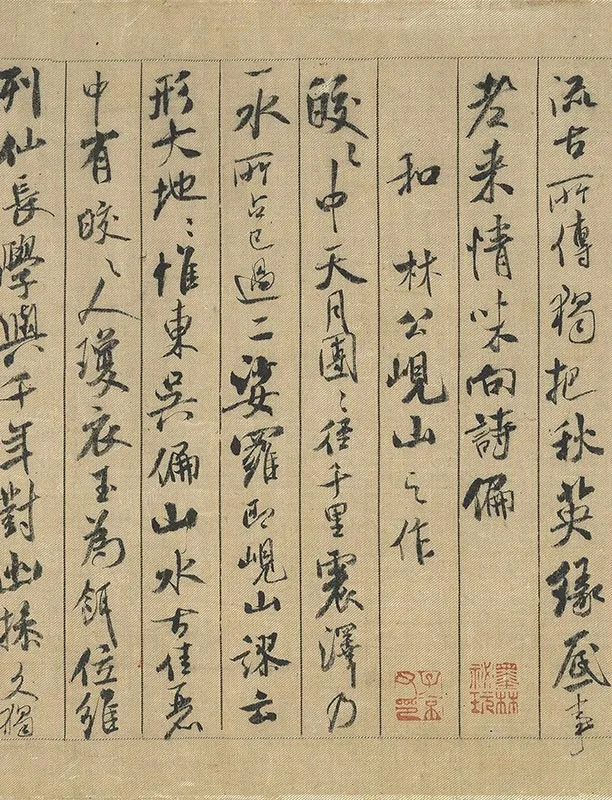 流古所傳獨把秋英緣底事
老来情味向詩偏
和林公峴山之作
皎〻中天月團〻徑千里震澤乃
一水所占已過二娑羅即峴山謬云
形大地〻惟東吳偏山水古佳麗
中有皎〻人瓊衣玉為餌位維
列仙長學與千年對幽操久獨
墨林祕玩
子京父印